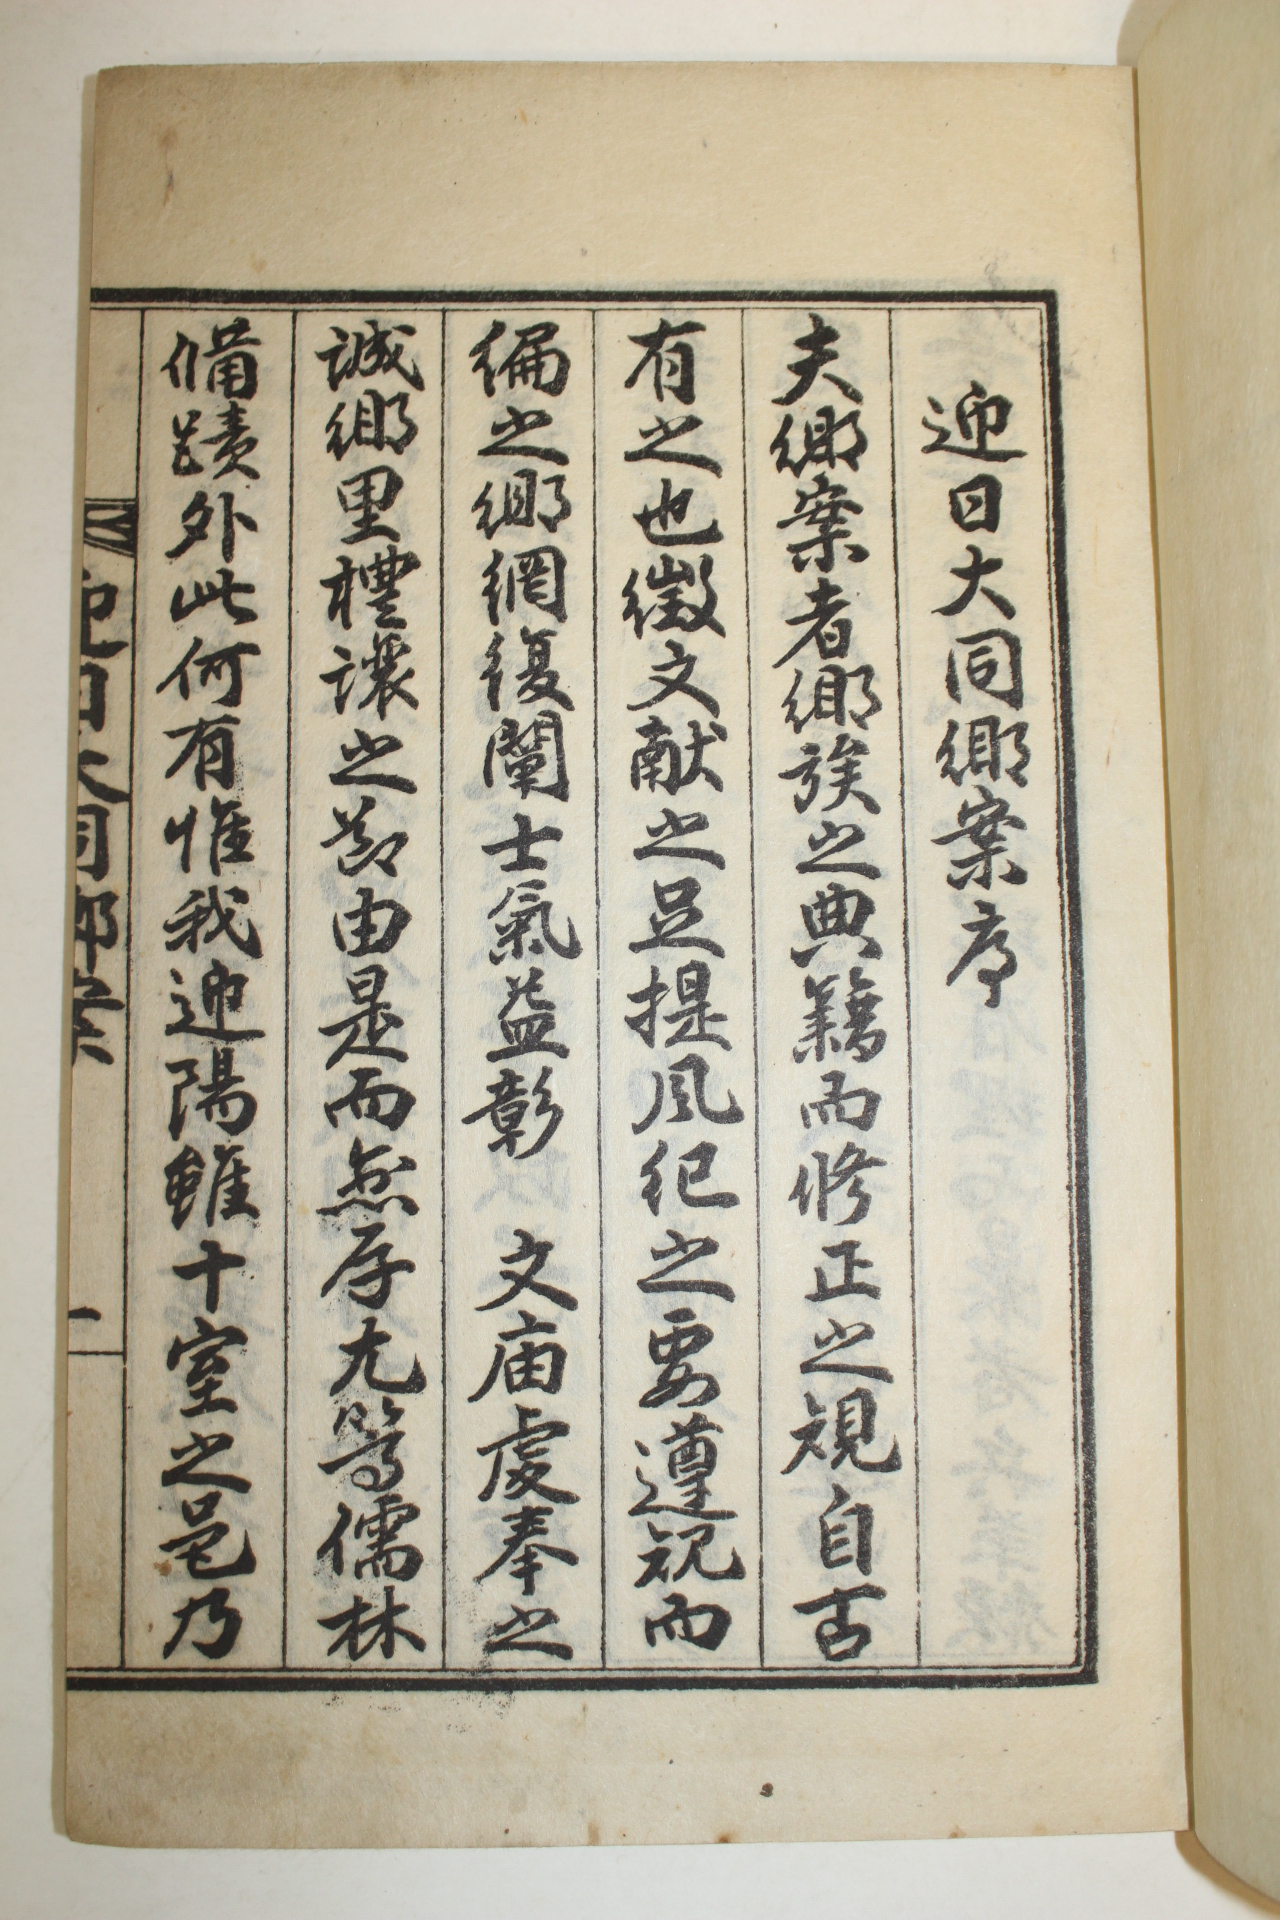 迎日大同鄉案序
夫鄉案者鄉族之典籍而修正之規自古
有之也徵文献之足提風紀之要遵規而
編之鄉網復闡士氣益彰 文庙虔奉之
誠鄉里禮讓之節由是而益厚尤篤儒林
備蹟外此何有惟我迎陽雖十室之邑乃
迎日大同鄉案
一